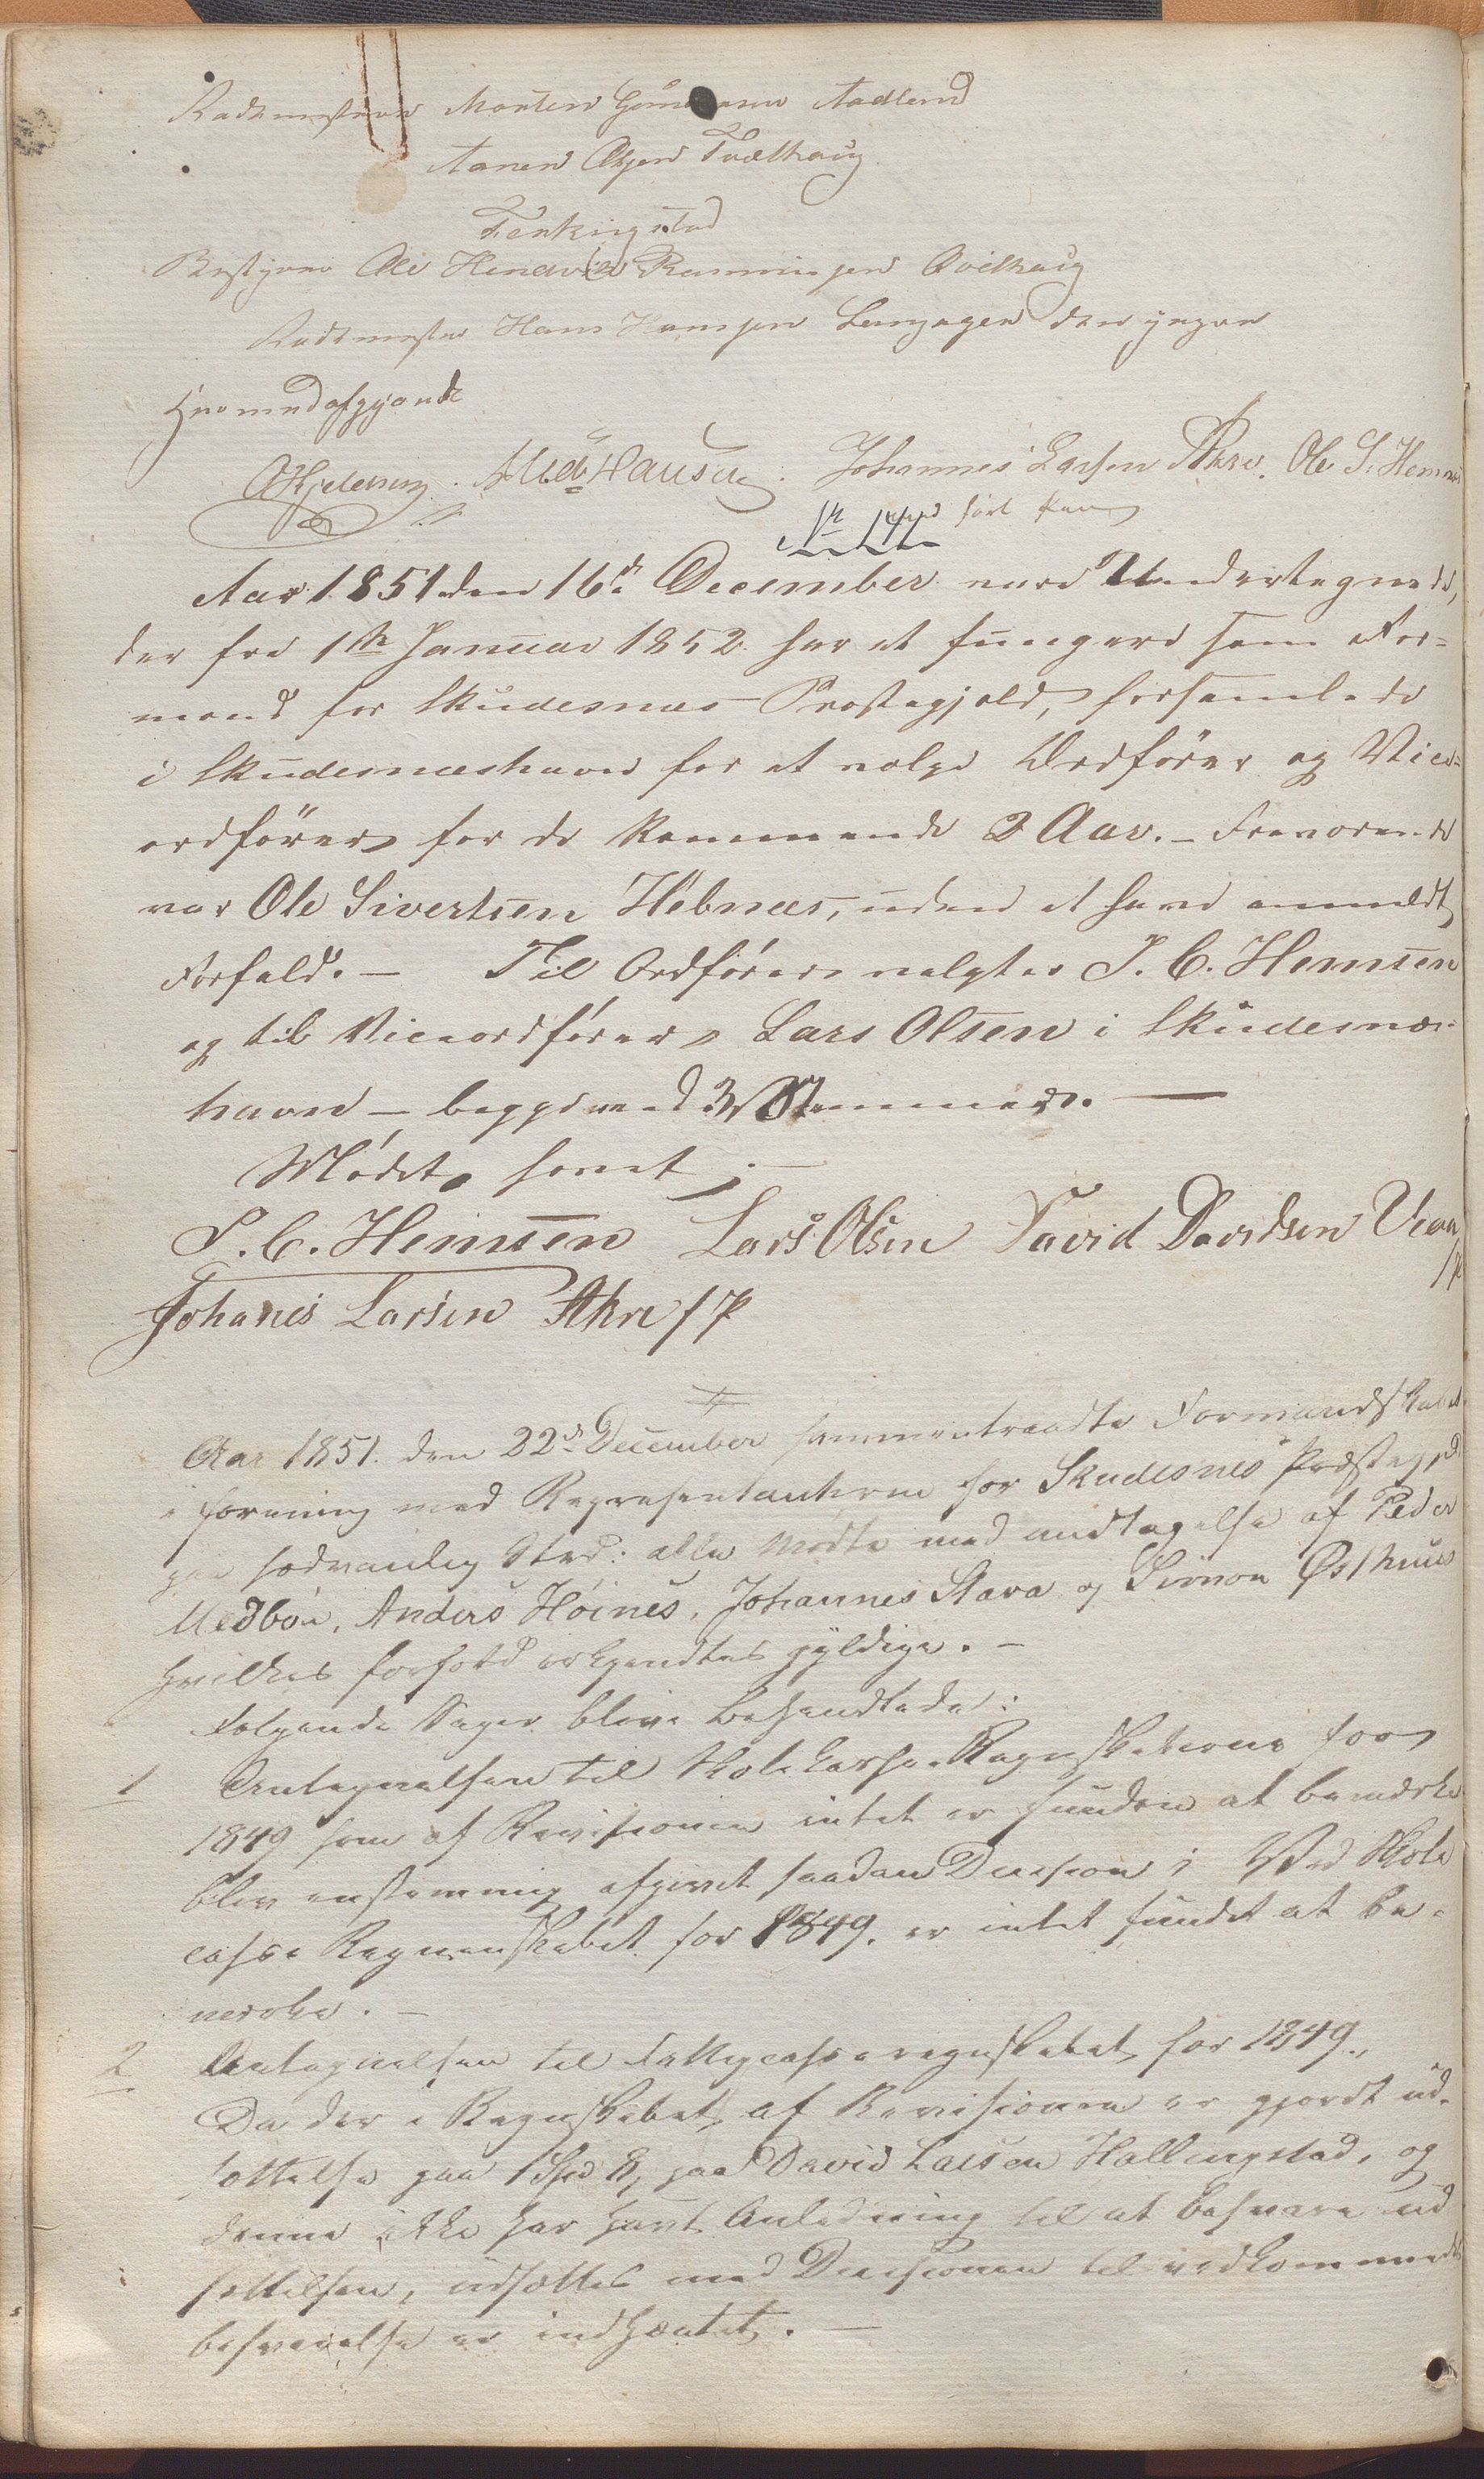 Rodemester Morten Aadland
Aanen Ohjen Tvelhaug
Ferkingstad
Bestyrer Ole Hendrik Rasmussen Qvilhaug
Rodemester Hans Hansen den yngre
Hermed afgjordt
Ohjelering. Johannes Larsen Akre. Ole S. Hemnes
med ført Pen
Aar 1851 den 16de December vare Undertegnede,
der fra 1te Januar 1852 har at fungere som For=
mænd for Skudesnæs Præstegjeld, forsamlede
i Skudesnæshavn for at vælge Ordfører og Vice=
ordfører for de kommende 2 Aar. – Fraværende
var Ole Sivertsen Hebnæs, uden at have anmeldt
Forfald. – Til Ordfører valgtes S. C. Hemsen
og til Viceordfører Lars Olsen i Skudesnæs=
havn – begge med 3 Stemmer. –
Mødet hævet. –
S. C. Hemsen Lars Olsen David Davidsen
Johanes Larsen Akre / P
Aar 1851. den 22de December sammentraadte Formandskabet
i forening med Repræsentanterne for Skudesnes Præstegjeld
paa sædvanlig Sted: alle mødte med undtagelse af Peder
Medbøe, Anders Høines, Johannes Stava og Simon Østhuus
hvilkes forfald erkjendtes gyldige. –
Følgende Sager bleve behandlede:
1 Antegnelsen til Skolekasse-Regnskaberne for
1849 som af Revisionen intet er funden at bemærke
blev enstemmig afgivet saadan Decision: Ved Skole
casse Regnenskabet for 1849. er intet fundet at be=
mærke. –
2 Antegnelsen til Fattigcasseregnskabet for 1849.,
Da der i Regnskabet af Revisionen er gjordt ud=
sættelse paa 1 Spd paa David Larsen Hallingstad, og
denne ikke har havt Anledning til at besvare ud
sættelsen, udsættes med Decisionen til vedkommendes
besvarelse er indhæntet. –